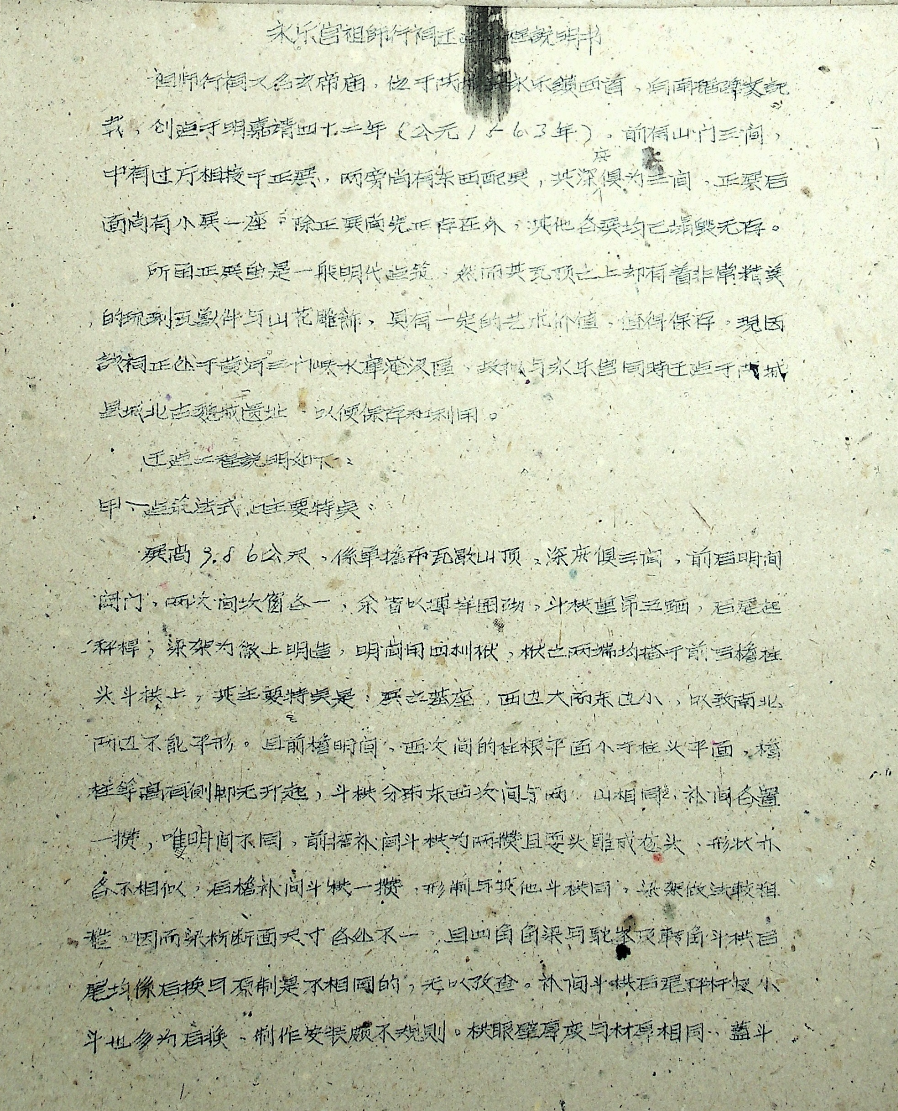 永乐宫祖師行祠迁建工程説明书
祖师行祠又名玄帝庙，位于芮城县永乐鎮西首，自南檐碑文記
载，创建于明嘉靖四十二年（公元1563年），前有山门三间，
中有过厅相接于正殿，两旁尚有东西配殿，共深广俱为三间，正殿后
面尚有小殿一座，除正殿尚完正存在外，其他各殿均已塌毁无存。
所留正殿虽是一般明代建筑，然而其瓦顶之上却有着非常精美
的琉璃瓦兽件与山花雕饰，具有一定的艺术价值，值得保存。現因
該祠正处于黄河三门峡水庫淹没區，故拟与永乐宫同時迁建于芮城
县城北古魏城遗址，以便保存和利用。
迁建工程説明如下：
甲、建筑法式上主要特奌：
殿高9.86公尺，係单檐布瓦歇山顶，深广俱三间，前后明间
闢门，两次间坎窗各一，余皆以塼垟围砌，斗栱重昂五跴，后尾起
秤桿；梁架为徹上明造，明间用四椽栿，栿之两端均搭于前后檐柱
头斗栱上，其主要特奌是：殿之基座，西边大而东边小，以致南北
两边不能平形。且前檐明间、西次间的柱根平面小于柱头平面，檐
柱等高而侧脚无升起，斗栱分布东西次间与两 山相同，补间各置
一攒，唯明间不同，前檐补间斗栱为两攒且耍头雕成龙头，形状亦
各不相似，后檐补间斗栱一攒，形制与其他斗栱同，梁架做法較粗
糙，因而梁枋断面尺寸各处不一，且四角角梁与駝峯及轉角斗栱后
尾均係后换与原制是不相同的，无以攷查。补间斗栱后尾秤杆及小
斗也多为后换，制作安装颇不规则。栱眼壁厚度与材厚相同，盖斗